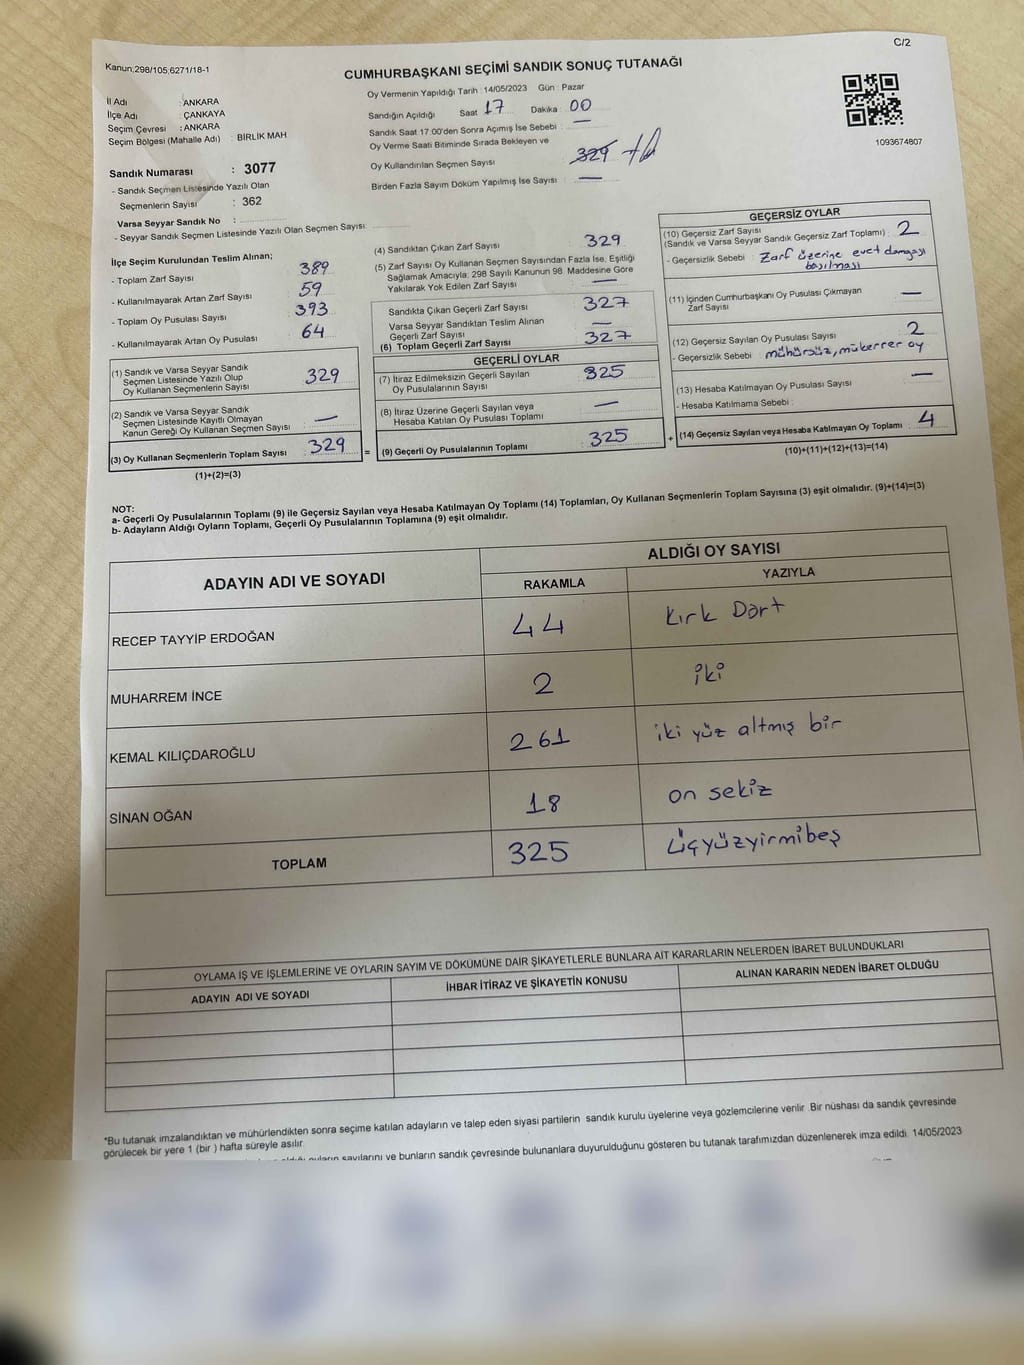 Kanun;298/105;6271/18-1
C/2
CUMHURBAŞKANI SEÇİMİ SANDIK SONUÇ TUTANAĞI
İl Adı : ANKARA
İlçe Adı : ÇANKAYA
Seçim Çevresi : ANKARA
Seçim Bölgesi (Mahalle Adı) : BİRLİK MAH
Oy Vermenin Yapıldığı Tarih : 14/05/2023 Gün : Pazar
Sandığın Açıldığı Saat 17 Dakika 00
Sandık Saat 17:00'den Sonra Açımış İse Sebebi : —
Oy Verme Saati Bitiminde Sırada Bekleyen ve
Oy Kullandırılan Seçmen Sayısı 329
Birden Fazla Sayım Döküm Yapılmış İse Sayısı : —
1093674807
Sandık Numarası : 3077
- Sandık Seçmen Listesinde Yazılı Olan
Seçmenlerin Sayısı : 362
Varsa Seyyar Sandık No :
- Seyyar Sandık Seçmen Listesinde Yazılı Olan Seçmen Sayısı:
İlçe Seçim Kurulundan Teslim Alınan;
- Toplam Zarf Sayısı 389
- Kullanılmayarak Artan Zarf Sayısı 59
- Toplam Oy Pusulası Sayısı 393
- Kullanılmayarak Artan Oy Pusulası 64
(1) Sandık ve Varsa Seyyar Sandık
Seçmen Listesinde Yazılı Olup
Oy Kullanan Seçmenlerin Sayısı 329
(2) Sandık ve Varsa Seyyar Sandık
Seçmen Listesinde Kayıtlı Olmayan
Kanun Gereği Oy Kullanan Seçmen Sayısı —
(3) Oy Kullanan Seçmenlerin Toplam Sayısı 329
(1)+(2)=(3)
(4) Sandıktan Çıkan Zarf Sayısı 329
(5) Zarf Sayısı Oy Kullanan Seçmen Sayısından Fazla İse, Eşitliği
Sağlamak Amacıyla; 298 Sayılı Kanunun 98. Maddesine Göre
Yakılarak Yok Edilen Zarf Sayısı —
Sandıkta Çıkan Geçerli Zarf Sayısı 327
Varsa Seyyar Sandıktan Teslim Alınan
Geçerli Zarf Sayısı —
(6) Toplam Geçerli Zarf Sayısı 327
GEÇERLİ OYLAR
(7) İtiraz Edilmeksizin Geçerli Sayılan
Oy Pusulalarının Sayısı 325
(8) İtiraz Üzerine Geçerli Sayılan veya
Hesaba Katılan Oy Pusulası Toplamı —
= (9) Geçerli Oy Pusulalarının Toplamı 325
GEÇERSİZ OYLAR
(10) Geçersiz Zarf Sayısı
(Sandık ve Varsa Seyyar Sandık Geçersiz Zarf Toplamı) : 2
- Geçersizlik Sebebi : Zarf üzerine evet damgası
basılması
(11) İçinden Cumhurbaşkanı Oy Pusulası Çıkmayan
Zarf Sayısı —
(12) Geçersiz Sayılan Oy Pusulası Sayısı 2
- Geçersizlik Sebebi : mühürsüz, mükerrer oy
(13) Hesaba Katılmayan Oy Pusulası Sayısı —
- Hesaba Katılmama Sebebi :
+ (14) Geçersiz Sayılan veya Hesaba Katılmayan Oy Toplamı 4
(10)+(11)+(12)+(13)=(14)
NOT:
a- Geçerli Oy Pusulalarının Toplamı (9) ile Geçersiz Sayılan veya Hesaba Katılmayan Oy Toplamı (14) Toplamları, Oy Kullanan Seçmenlerin Toplam Sayısına (3) eşit olmalıdır. (9)+(14)=(3)
b- Adayların Aldığı Oyların Toplamı, Geçerli Oy Pusulalarının Toplamına (9) eşit olmalıdır.
ADAYIN ADI VE SOYADI
ALDIĞI OY SAYISI
RAKAMLA YAZIYLA
RECEP TAYYİP ERDOĞAN 44 Kırk Dört
MUHARREM İNCE 2 iki
KEMAL KILIÇDAROĞLU 261 iki yüz altmış bir
SİNAN OĞAN 18 on sekiz
TOPLAM 325 üçyüzyirmibeş
OYLAMA İŞ VE İŞLEMLERİNE VE OYLARIN SAYIM VE DÖKÜMÜNE DAİR ŞİKAYETLERLE BUNLARA AİT KARARLARIN NELERDEN İBARET BULUNDUKLARI
ADAYIN ADI VE SOYADI İHBAR İTİRAZ VE ŞİKAYETİN KONUSU ALINAN KARARIN NEDEN İBARET OLDUĞU
*Bu tutanak imzalandıktan ve mühürlendikten sonra seçime katılan adayların ve talep eden siyasi partilerin sandık kurulu üyelerine veya gözlemcilerine verilir. Bir nüshası da sandık çevresinde
görülecek bir yere 1 (bir ) hafta süreyle asılır.
oyların sayılarını ve bunların sandık çevresinde bulunanlara duyurulduğunu gösteren bu tutanak tarafımızdan düzenlenerek imza edildi. 14/05/2023